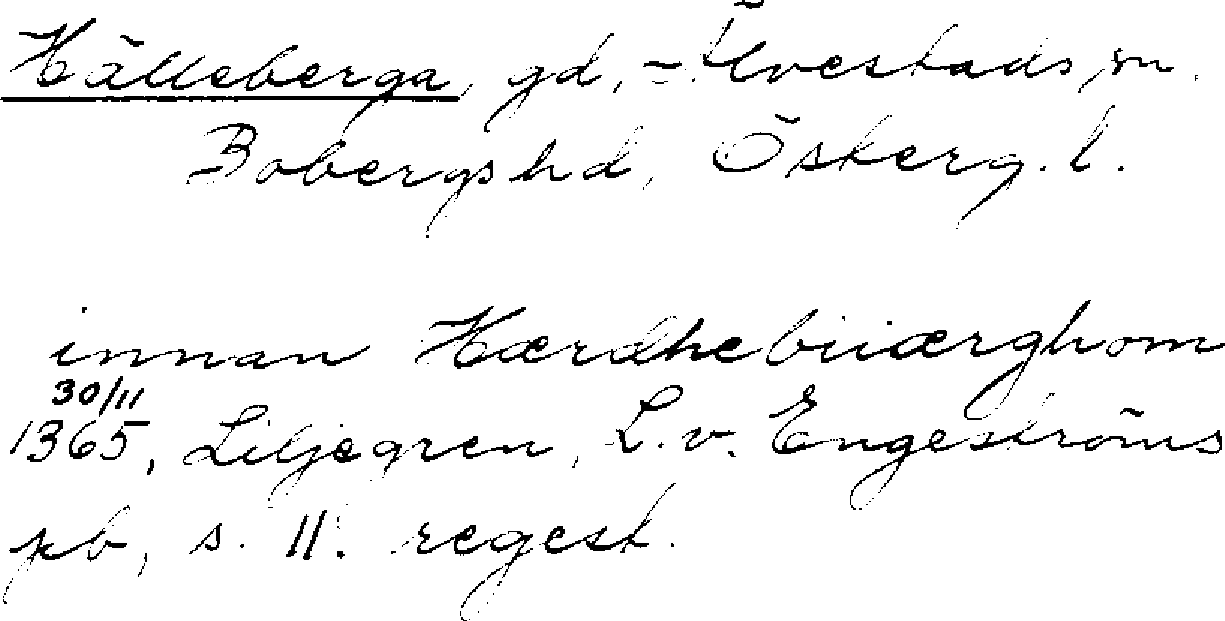 Hälleberga, gd, Älvestads sn.
Bobergs hd, Österg. l.
innan Hærdhebiiærghom
30/11
1365, Liljegren, L. v. Engeströms
pb, s. 11. regest.